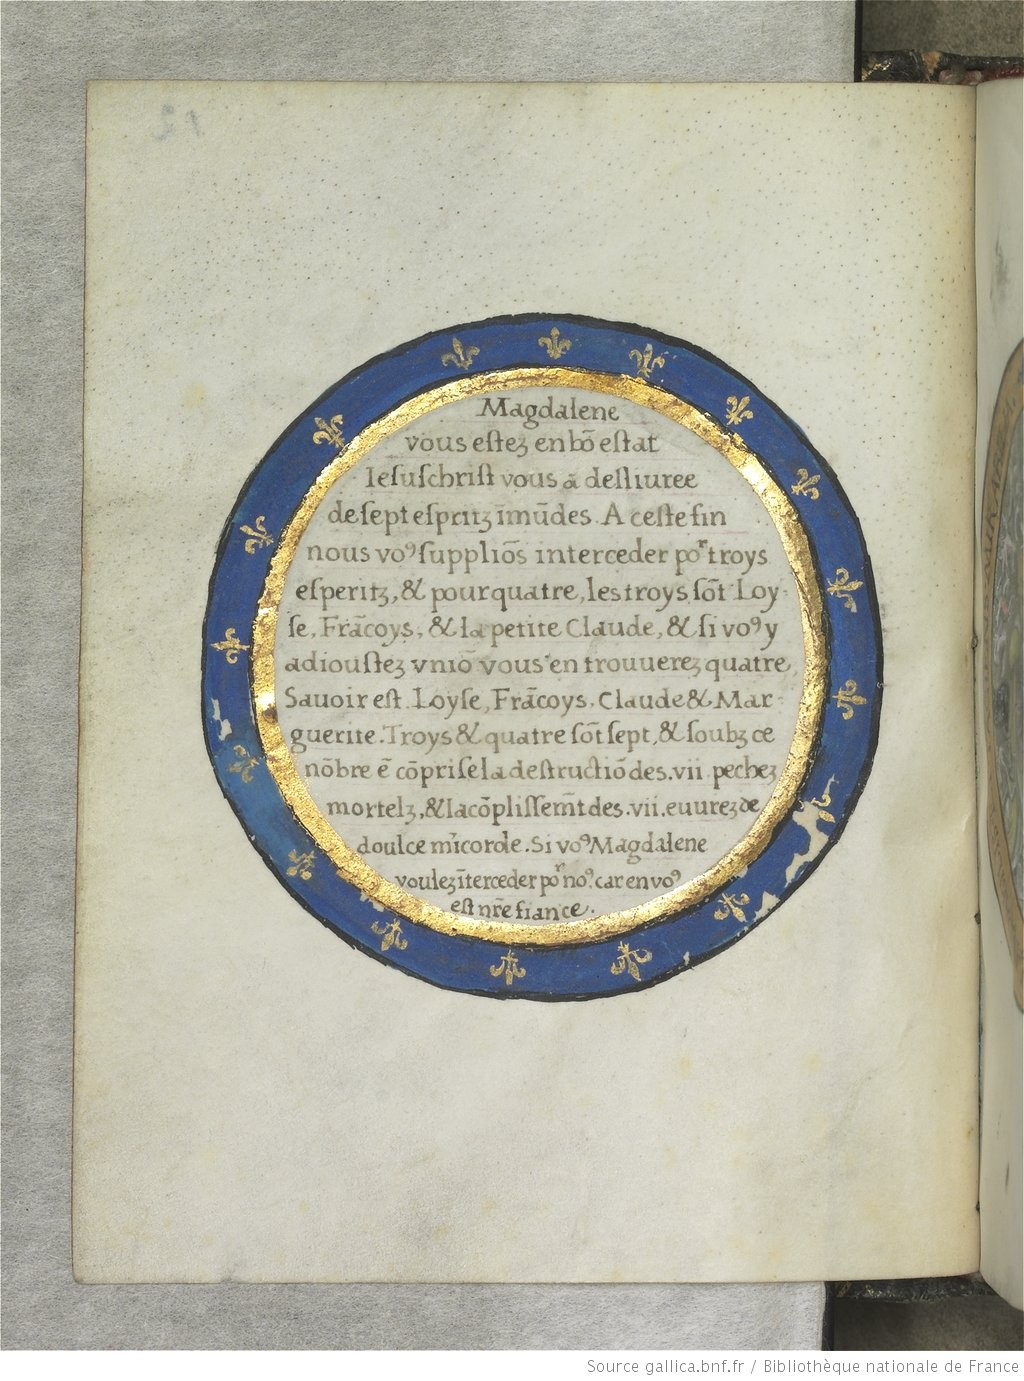 Magdalene
vous esteʒ en bō estat
Iesuschrist vous a desliuree
de sept espritʒ īmūdes. A ceste fin
nous voꝰ suppliōs interceder poʳ troys
esperitʒ, & pour quatre, les troys sōt Loy-
se, Frācoys, & la petite Claude, & si voꝰ y
adiousteʒ vniō vous en trouuereʒ quatre,
Sauoir est Loyse, Frācoys, Claude & Mar-
guerite. Troys & quatre sōt sept, & soubʒ ce
nōbre ē cōprise la destructiō des .vii. pecheʒ
mortelʒ, & lacōplissemt̄ des .vii. euureʒ de
doulce mīcorde. Si voꝰ Magdalene
vouleʒ īterceder poʳ noꝰ. car en voꝰ
est nr̄e fiance.
12
Source gallica.bnf.fr / Bibliothèque nationale de France